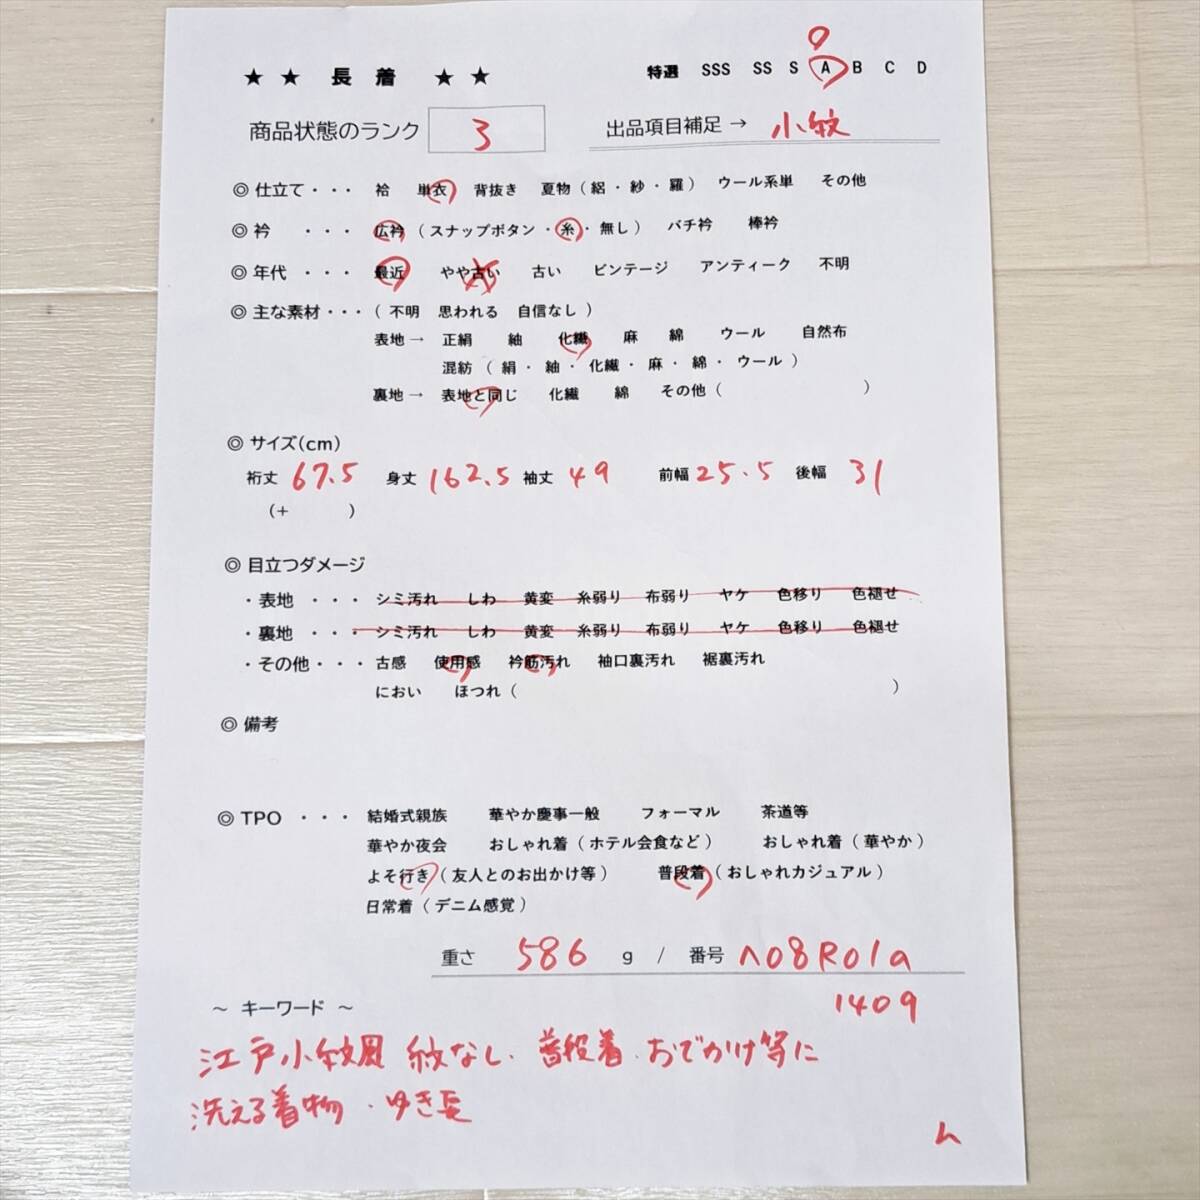 ★ ★ 長 着 ★ ★
特選 SSS SS S A B C D
商品状態のランク 3 出品項目補足 → 小紋
◎ 仕立て ・・・ 袷 単衣 背抜き 夏物 ( 絽 ・ 紗 ・ 羅 ) ウール系単 その他
◎ 衿 ・・・ 広衿 ( スナップボタン ・ 糸 ・ 無し ) バチ衿 棒衿
◎ 年代 ・・・ 最近 やや古い 古い ビンテージ アンティーク 不明
◎ 主な素材 ・・・ ( 不明 思われる 自信なし )
表地 → 正絹 紬 化繊 麻 綿 ウール 自然布
混紡 ( 絹 ・ 紬 ・ 化繊 ・ 麻 ・ 綿 ・ ウール )
裏地 → 表地と同じ 化繊 綿 その他 ( )
◎ サイズ(cm)
裄丈 67.5 身丈 162.5 袖丈 49 前幅 25.5 後幅 31
(+ )
◎ 目立つダメージ
・表地 ・・・ シミ汚れ しわ 黄変 糸弱り 布弱り ヤケ 色移り 色褪せ
・裏地 ・・・ シミ汚れ しわ 黄変 糸弱り 布弱り ヤケ 色移り 色褪せ
・その他 ・・・ 古感 使用感 衿筋汚れ 袖口裏汚れ 裾裏汚れ
におい ほつれ ( )
◎ 備考
◎ TPO ・・・ 結婚式親族 華やか慶事一般 フォーマル 茶道等
華やか夜会 おしゃれ着 ( ホテル会食など ) おしゃれ着 ( 華やか )
よそ行き ( 友人とのお出かけ等 ) 普段着 ( おしゃれカジュアル )
日常着 ( デニム感覚 )
重さ 586 g / 番号 n08R01a
1409
～ キーワード ～
江戸小紋風 紋なし. 普段着. おでかけ等に
洗える着物 . ゆき長
ム